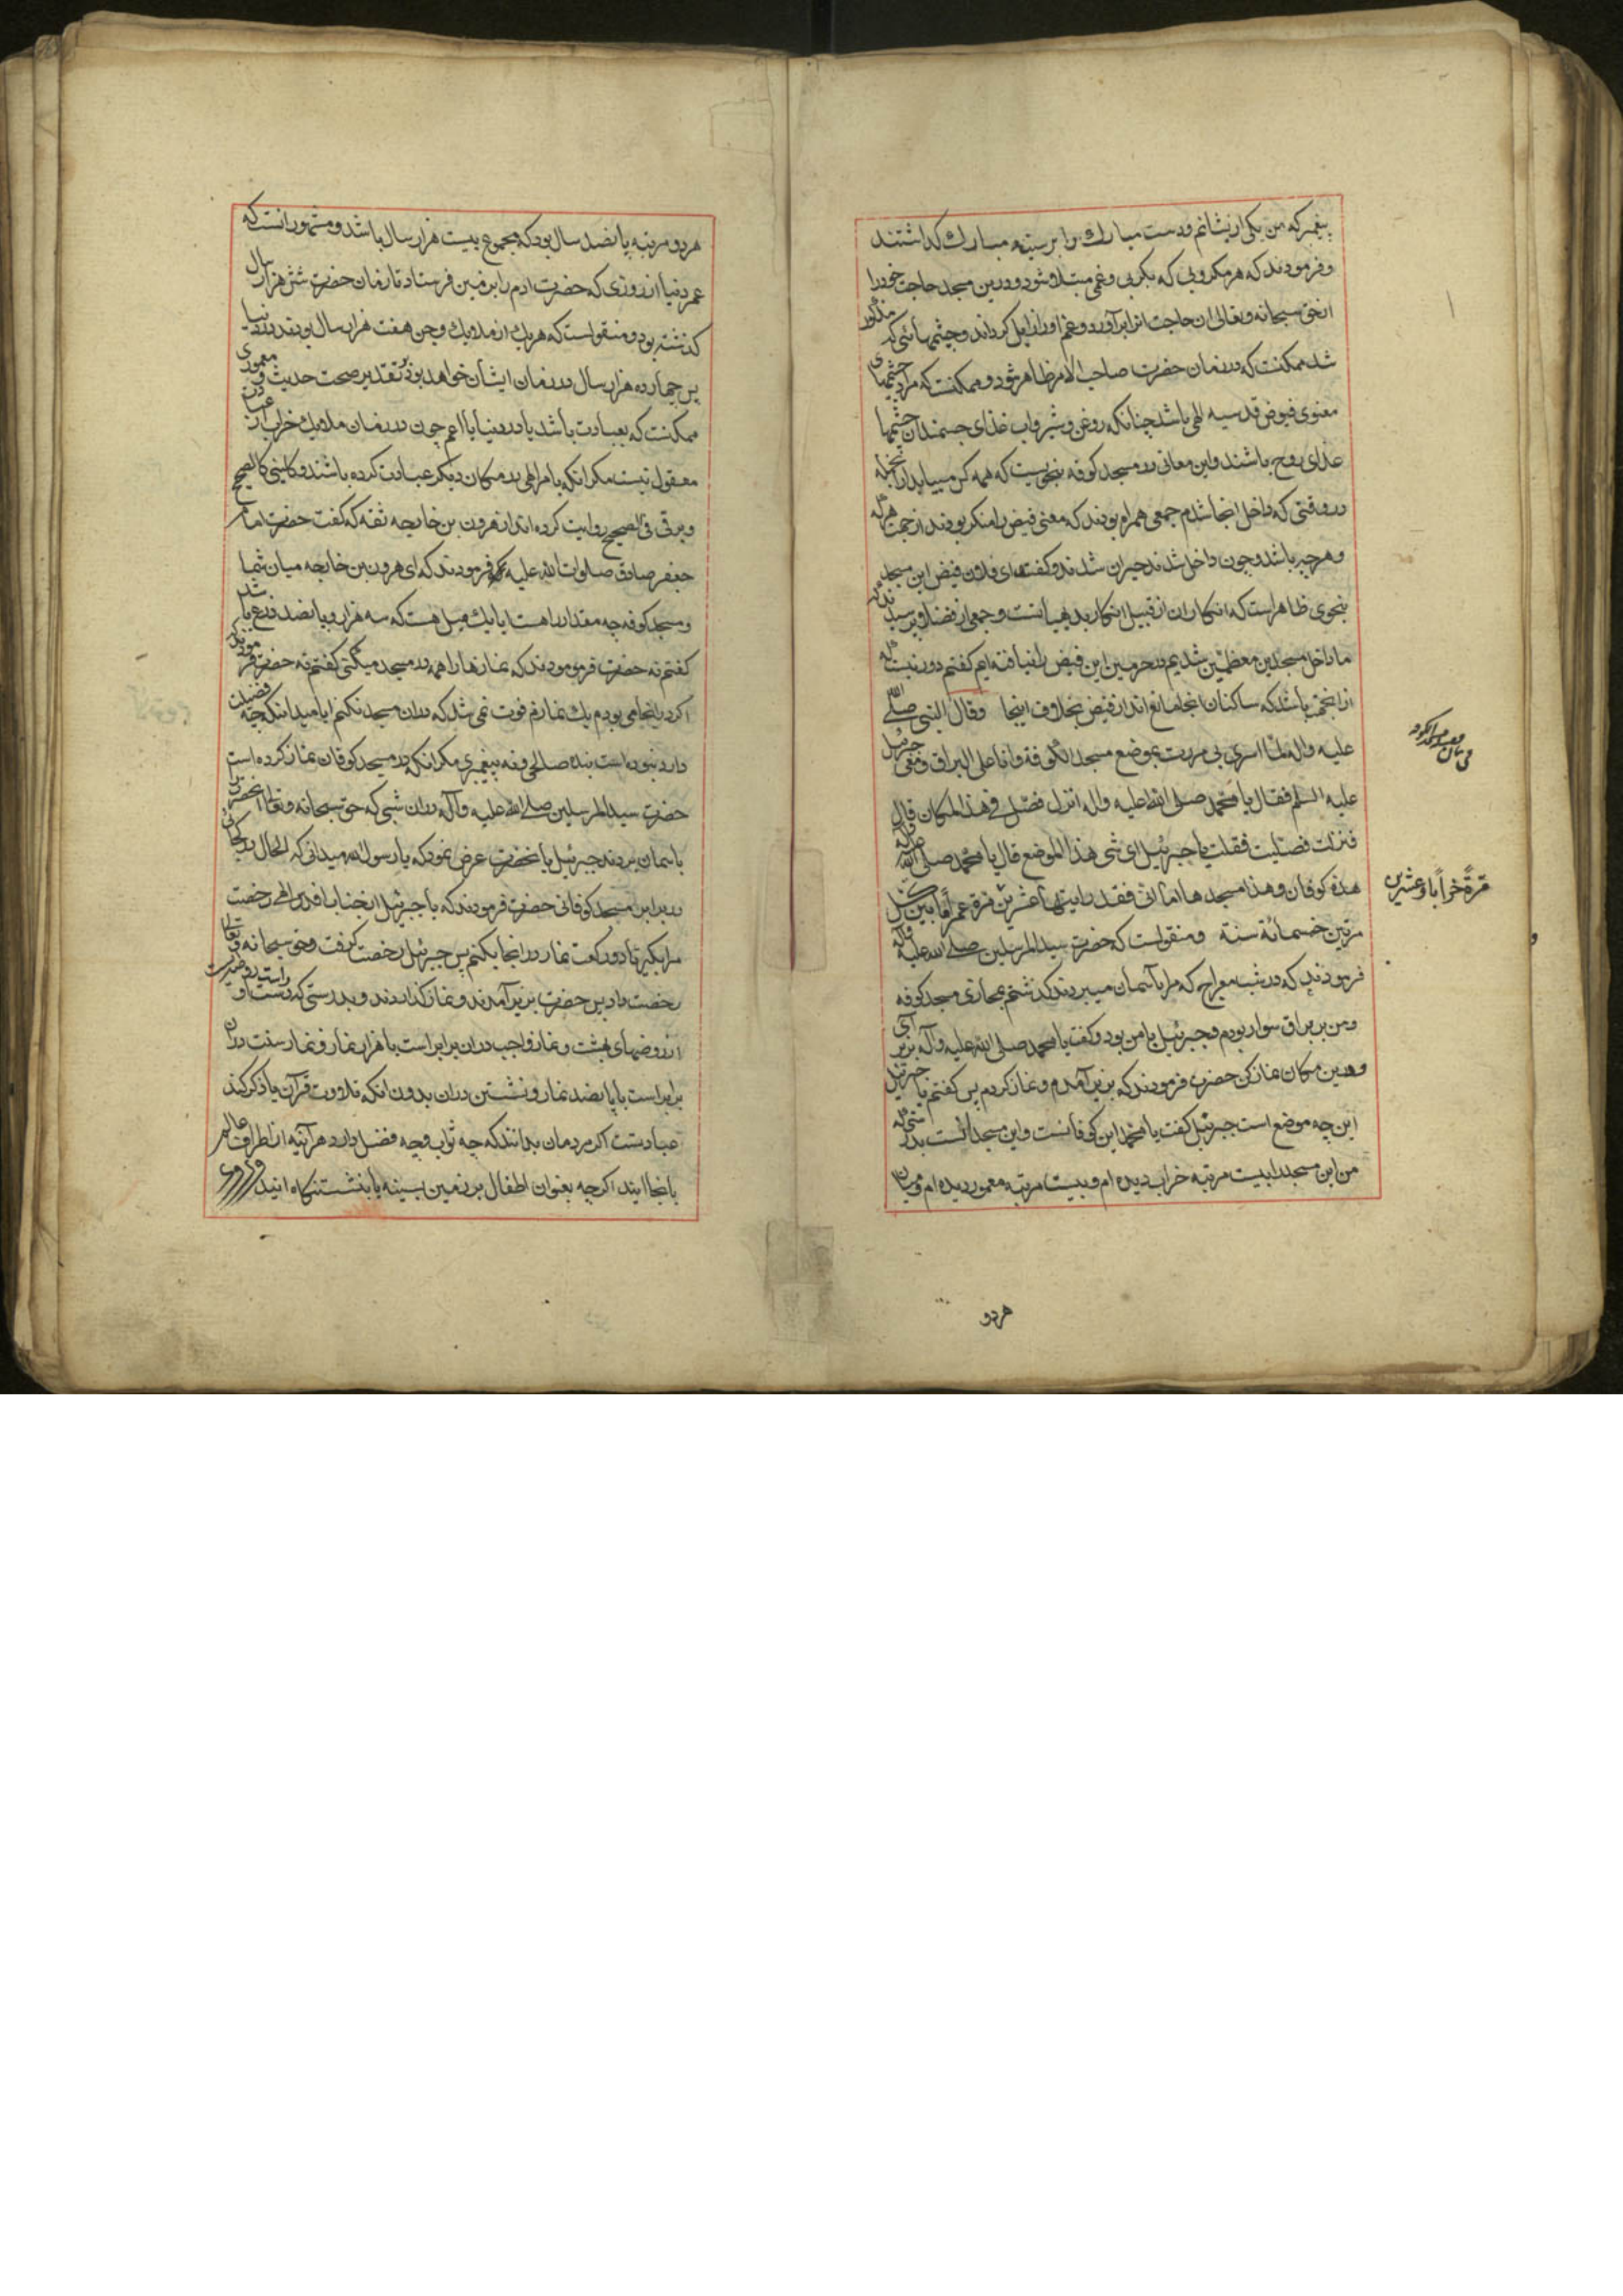 پیغمبر که من یکی از ایشانم و دست مبارك را بر سینهٔ مبارك گذاشتند
و فرمودند که هر مکروبی که بکربی و غمی مبتلا شود و درین مسجد حاجت خود را
از حق سبحانه و تعالی آن حاجت او را برآورد و غم او را زایل گرداند و چشمهائی که مذکور
شد ممکنست که در زمان حضرت صاحب الامر ظاهر شود و ممکنست که مراد چشمهای
معنوی فیوض قدسیه الهی باشد چنانکه روغن و شیر و آب غذای جسمند آن چشمها
غذای روح باشند و این معانی در مسجد کوفه بنحویست که همه کس مییابد از انجمله
در وقتی که داخل انجا شدم جمعی همراه بودند که معنی فیض را منکر بودند از جهت
و هر چه باشد و چون داخل شدند حیران شدند و گفتند ای فلان فیض این مسجد
بنحوی ظاهر است که انکار آن از قبیل انکار بدیهیاتست و جمعی از فضلا پرسیدند که
ما داخل مسجدین معظمین شدیم در حرمین این فیض را نیافته ایم گفتم دور نیست که
از انجهت باشد که ساکنان انجا مانع اند از فیض بخلاف اینجا وقال النبی صلی الله
علیه واله لما اسری بی مررت بموضع مسجد الکوفة وانا علی البراق ومعی جبرئیل
علیه السلم فقال یا محمد صلی الله علیه واله انزل فصل فی هذا المکان قال
فنزلت فصلیت فقلت یا جبرئیل ای شی هذا الموضع قال یا محمد صلی الله علیه واله
هذه کوفان وهذا مسجدها اما انی فقد رایتها عشرین مرة عمرانا بین کل
مرتین خمسمائة سنة ومنقولست که حضرت سید المرسلین صلی الله علیه وآله
فرمودند که در شب معراج که مرا بآسمان میبردند گذشتم بمحاذی مسجد کوفه
و من بر براق سوار بودم و جبرئیل با من بود و گفت یا محمد صلی الله علیه وآله بزیر آی
و درین مکان نماز کن حضرت فرمودند که بزیر آمدم و نماز کردم پس گفتم یا جبرئیل
این چه موضع است جبرئیل گفت یا محمد این کوفانست و این مسجد آنست بدرستی که
من این مسجد را بیست مرتبه خراب دیده ام و بیست مرتبه معمور دیده ام و میان
مرة خرابا وعشرین
هردو
هر دو مرتبه پانصد سال بود که مجموع بیست هزار سال باشد و مشهور آنست که
عمر دنیا از روزی که حضرت آدم را بزمین فرستاد تا زمان حضرت شش هزار سال
گذشته بود و منقولست که هر یك از ملایك و جن هفت هزار سال بودند در دنیا
پس چهارده هزار سال در زمان ایشان خواهد بود بر تقدیر صحت حدیث و معموری
ممکنست که بعبادت باشد یا در دنیا یا اعم چون در زمان ملایك خراب از
معقول نیست مگر آنکه بامر الهی در مکان دیگر عبادت کرده باشند و کلینی کالصحیح
و برقی فی الصحیح روایت کرده اند از هرون بن خارجه ثقه که گفت حضرت امام
جعفر صادق صلوات الله علیه فرمودند که ای هرون بن خارجه میان شما
و مسجد کوفه چه مقدار راهست ایا یك میل هست که سه هزار و پانصد ذرع باشد
گفتم نه حضرت فرمودند که نمازها را همه در مسجد میکنی گفتم نه حضرت فرمودند که
اگر در انجا می بودم یك نمازم فوت نمی شد که در ان مسجد نکنم ایا میدانی که چه فضیلت
دارد نبوده است بنده صالحی و نه پیغمبری مگر آنکه در مسجد کوفان نماز کرده است
حضرت سید المرسلین صلی الله علیه وآله در ان شبی که حق سبحانه و تعالی انحضرت را
باسمان بردند جبرئیل بانحضرت عرض نمود که یا رسول الله میدانی که الحال در کجائی
در برابر مسجد کوفانی حضرت فرمودند که یا جبرئیل از جناب اقدس الهی رخصت
مرا بگیر تا دو رکعت نماز در انجا بکنم پس جبرئیل رخصت گرفت و حق سبحانه و تعالی
رخصت داد پس حضرت بزیر آمدند و نماز گذاردند و بدرستی که دست راست او روضه ایست
از روضهای بهشت و نماز واجب در ان برابر است با هزار نماز و نماز سنت در ان
برابر است با پانصد نماز و نشستن در ان بدون آنکه تلاوت قرآن یا ذکر کنند
عبادتست اگر مردمان بدانند که چه ثواب و چه فضل دارد هر آینه از اطراف عالم
بانجا ایند اگرچه بعنوان اطفال بر زمین بسینه یا بنشستنگاه ایند